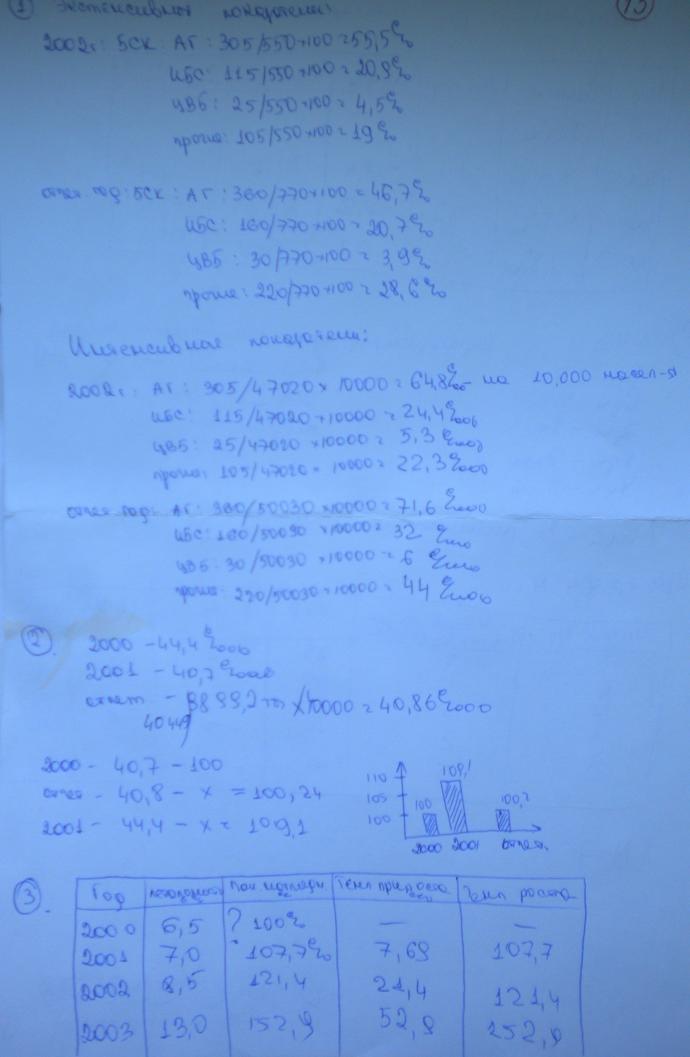 1 Экстенсивные показатели: 13
2002г: БСК: АГ: 305/550×100=55,5%
ИБС: 115/550×100=20,9%
ЦВБ: 25/550×100=4,5%
прочие: 105/550×100=19%
отчет. год: БСК: АГ: 360/770×100=46,7%
ИБС: 160/770×100=20,7%
ЦВБ: 30/770×100=3,9%
прочие: 220/770×100=28,6%
Интенсивные показатели:
2002г: АГ: 305/47020×10000=64,8%oo на 10,000 насел-я
ИБС: 115/47020×10000=24,4%oo
ЦВБ: 25/47020×10000=5,3%ooo
прочие: 105/47020×10000=22,3%ooo
отчет. год: АГ: 360/50030×10000=71,6%ooo
ИБС: 160/50030×10000=32%ooo
ЦВБ: 30/50030×10000=6%ooo
прочие: 220/50030×10000=44%ooo
2 2000 – 44,4%ooo
2001 – 40,7%ooo
отчет – ×10000=40,86%ooo
2000 – 40,7 – 100
отчет – 40,8 – x = 100,24
2001 – 44,4 – x = 109,1
110 109,1
105 100 100,2
100
2000 2001 отчетн.
3 Год Пок наглядн. Темп прироста Темп роста
2000 6,5 ? 100% — —
2001 7,0 107,7% 7,69 107,7
2002 8,5 121,4 21,4 121,4
2003 13,0 152,9 52,9 152,9